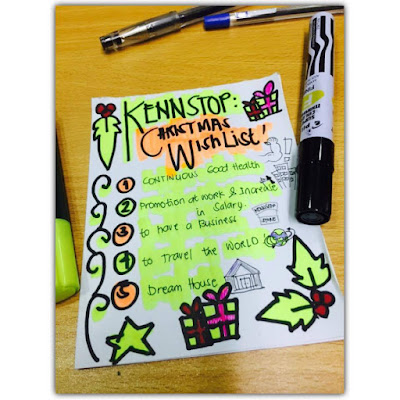 KENNSTOP:
CHRISTMAS
WishList!
1 CONTINUOUS Good Health
2 Promotion at work & Increase
in Salary.
3 to have a Business
4 to Travel the WORLD
5 Dream House